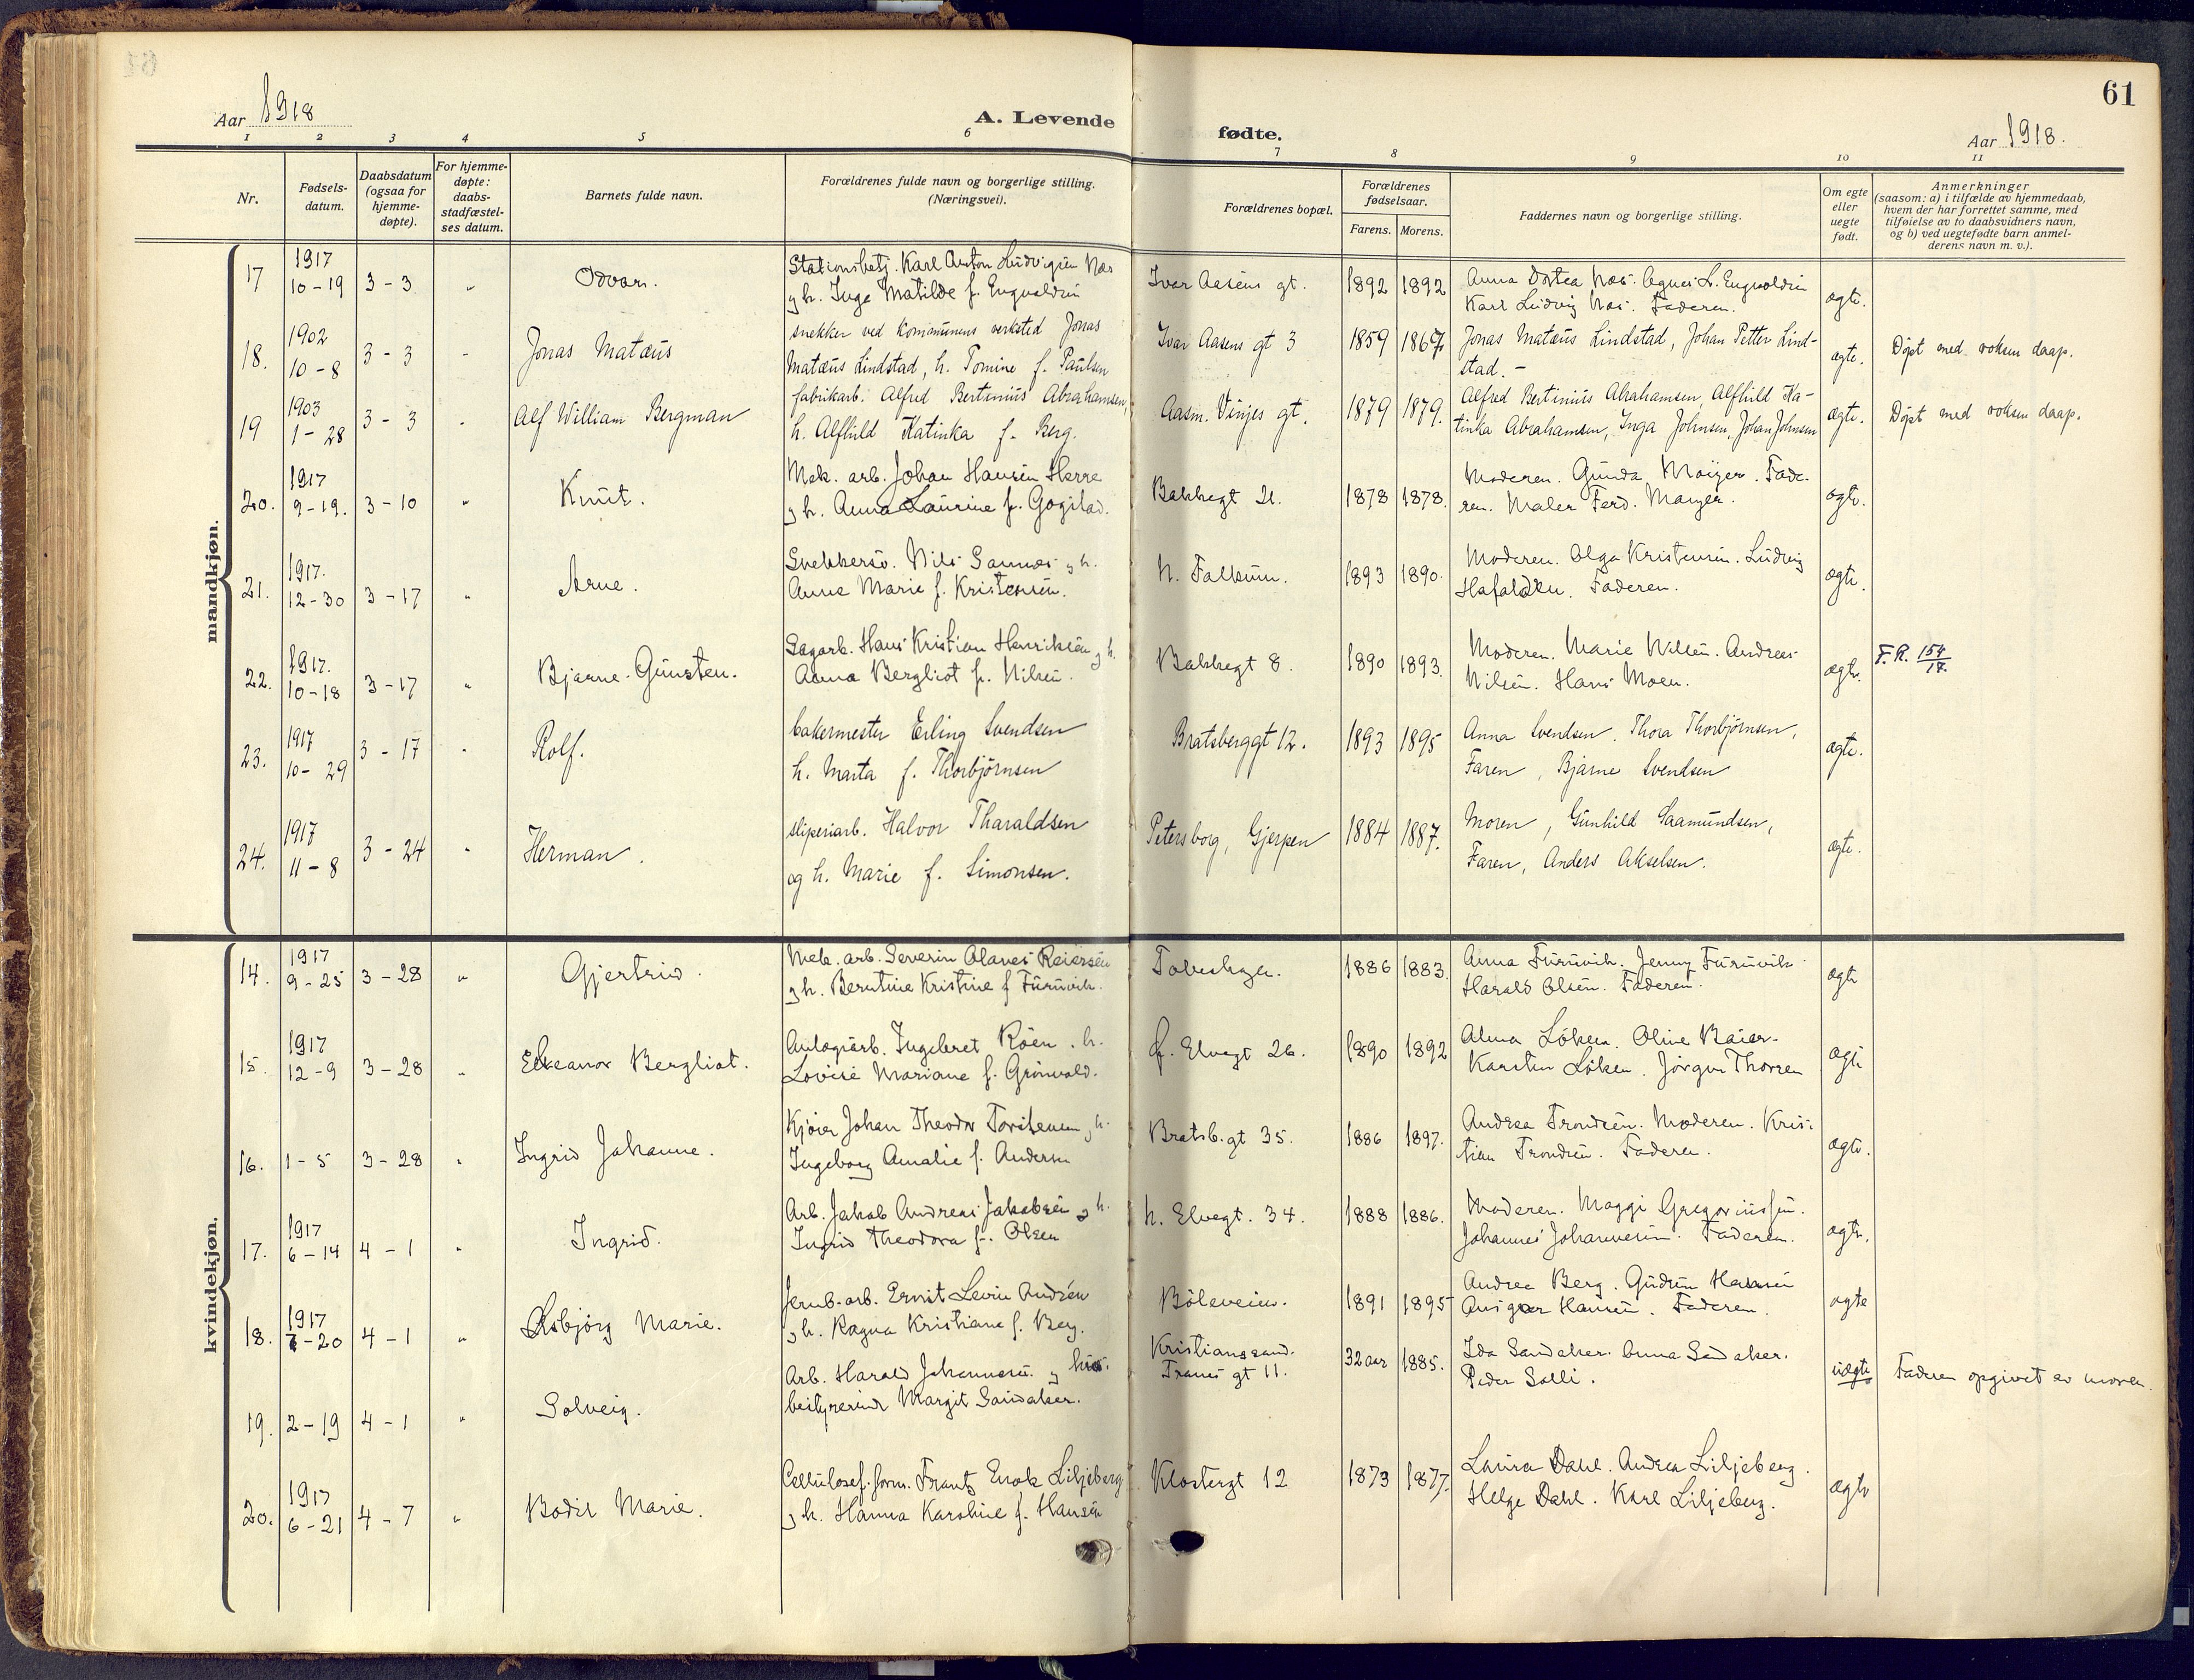 61
Aar 1918
A. Levende
fødte.
Aar 1918.
1 2 3 4 5 6 7 8 9 10 11
Nr.
Fødsels-
datum.
Daabsdatum
(ogsaa for
hjemme-
døpte).
For hjemme-
døpte:
daabs-
stadfæstel-
ses datum.
Barnets fulde navn.
Forældrenes fulde navn og borgerlige stilling.
(Næringsvei).
Forældrenes bopæl.
Forældrenes
fødselsaar.
Farens. Morens.
Faddernes navn og borgerlige stilling.
Om egte
eller
uegte
født.
Anmerkninger
(saasom: a) i tilfælde av hjemmedaab,
hvem der har forrettet samme, med
tilføielse av to daabsvidners navn,
og b) ved uegtefødte barn anmel-
derens navn m. v.).
mandkjøn.
17 1917 10-19 3-3 " Odvar.
Stationsbetj. Karl Anton Ludvigsen Næs
og h. Inga Matilde f. Engvoldsen
Ivar Aasens gt. 1892 1892
Anna Dortea Næs. Agnes L. Engvoldsen
Karl Ludvig Næs. Faderen. ægte.
18. 1902 10-8 3-3 - Jonas Matæus
snekker ved kommunens verksted Jonas
Matæus Lindstad, h. Tomine f. Paulsen
Ivar Aasens gt 3 1859 1867.
Jonas Matæus Lindstad, Johan Petter Lind-
stad. - ægte. Døpt med voksen daap.
19 1903 1-28 3-3 - Alf William Bergman
fabrikarb. Alfred Bertinius Abrahamsen,
h. Alfhild Katinka f. Berg.
Aasm. Vinjes gt. 1879 1879.
Alfred Bertinius Abrahamsen, Alfhild Ka-
tinka Abrahamsen, Inga Johnsen, Johan Johnsen
ægte. Døpt med voksen daap.
20. 1917 9-19. 3-10 " Knut.
Mek. arb. Johan Hansen Herre
og h. Anna Laurine f. Gogstad.
Bakkegt 21. 1878 1878.
Moderen. Gunda Mayer. Fade-
ren. Maler Ferd. Mayer. ægte.
21. 1917. 12-30 3-17 " Arne.
Snekkersv. Nils Sannæs og h.
Anna Marie f. Kristensen.
N. Falkum. 1893 1890.
Moderen. Olga Kristensen. Ludvig
Faderen. ægte.
22. 1917. 10-18 3-17 " Bjarne Gunsten.
Sagarb. Hans Kristian Henriksen og h.
Anna Bergliot f. Nilsen.
Bakkegt 8. 1890 1893.
Moderen. Marie Nilsen. Andreas
Nilsen. Hans Moen. ægte. F.R. 154/17.
23. 1917 10-29 3-17 - Rolf.
bakermester Erling Svendsen
h. Marta f. Thorbjørnsen
Bratsberggt 12. 1893 1895
Anna Svendsen, Thora Thorbjørnsen,
Faren, Bjarne Svendsen ægte.
24. 1917 11-8 3-24 - Herman.
sliperiarb. Halvor Tharaldsen
og h. Marie f. Simonsen.
Petersborg, Gjerpen 1884 1887.
Moren, Gunhild Saamundsen,
Faren, Anders Akselsen. ægte.
kvindekjøn.
14. 1917 9-25 3-28 " Gjertrud.
Mek. arb. Severin Olaves Reiersen
og h. Berntine Kristine f. Furuvik.
1886 1883.
Anna Furuvik. Jenny Furuvik
Harald Olsen. Faderen. ægte
15. 1917 12-9 3-28 " Eleanor Bergliot.
Anlægsarb. Ingebret Røen. h.
Lovise Mariane f. Grönvold.
f. Elvegt 26. 1890 1892
Alma Löken. Oline Baier.
Karsten Löken. Jörgen Thorsen ægte
16. 1-5 3-28 " Ingrid Johanne.
Kjører Johan Theodor Torstensen og h.
Ingeborg Amalie f. Andersen
Bratsb.gt 35. 1886 1897.
Andrea Trondsen. Moderen. Kris-
tian Trondsen. Faderen. ægte.
17. 1917 6-14 4-1 " Ingrid.
Arb. Jakob Andreas Jakobsen og h.
Ingrid Theodora f. Olsen
N. Elvegt. 34. 1888 1886.
Moderen. Maggi Gregoriussen.
Johannes Johannesen. Faderen. ægte.
18. 1917 7-20 4-1 " Asbjørg Marie.
Jernb.arb. Ernst Levin Andrén
og h. Ragna Kristiane f. Berg.
Böleveien. 1891 1895
Andrea Berg. Gudrun Hansen
Ansgar Hansen. Faderen. ægte
19. 2-19 4-1 " Solveig.
Arb. Harald Johannesen og hus-
bestyrerinde Margit Sandaker.
Kristianssand.
gt 11. 32 aar 1885.
Ida Sandaker. Anna Sandaker.
Peder Solli. uægte Faderen opgivet av moren.
20. 1917 6-21 4-7 " Bodil Marie.
Cellulosef. form. Frants Enok Liljeberg
og h. Hanna Karoline f. Hansen
Klostergt 12 1873 1877.
Laura Dahl. Andrea Liljeberg.
Helge Dahl. Karl Liljeberg. ægte